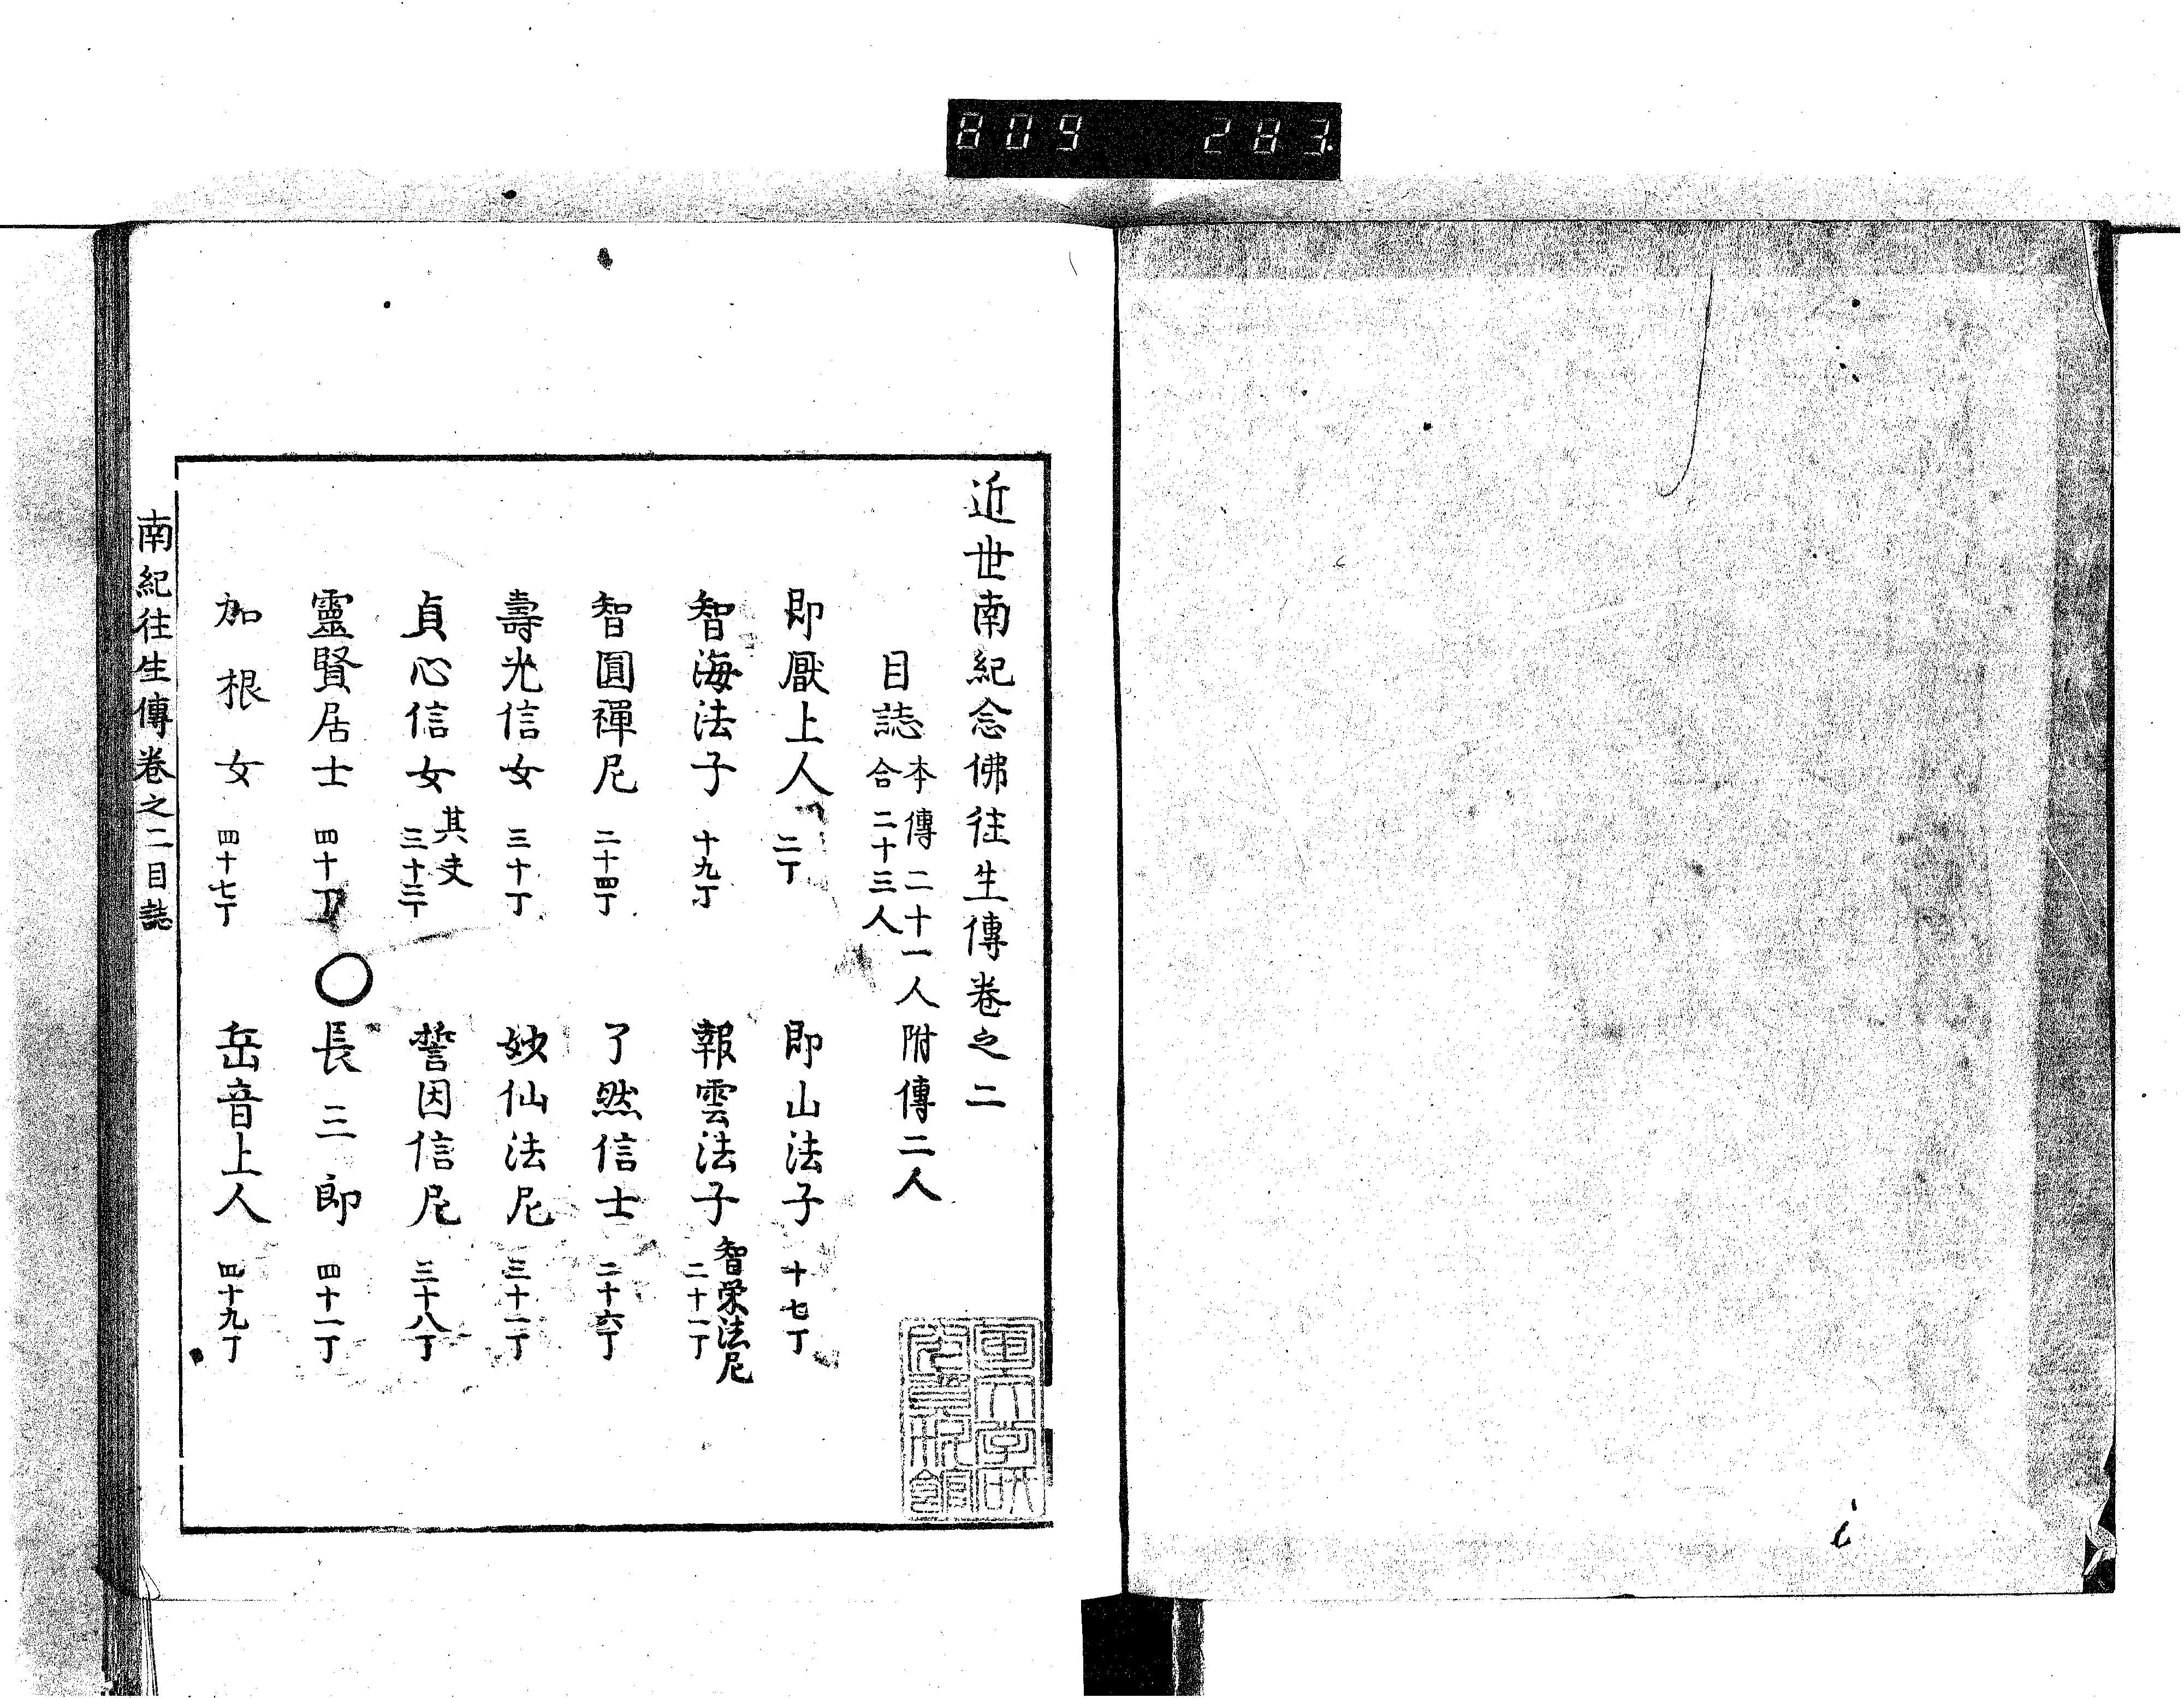 809 283.
近世南紀念佛往生傳卷之二
目誌 本傳二十一人附傳二人
合二十三人
即厭上人 二丁
即山法子 十七丁
智海法子 十九丁
報雲法子 智栄法尼 二十一丁
智圓禪尼 二十四丁
了然信士 二十六丁
壽光信女 三十丁
妙仙法尼 三十一丁
貞心信女 其夫 三十三丁
誓因信尼 三十八丁
靈賢居士 四十丁
○長三郎 四十一丁
加根女 四十七丁
岳音上人 四十九丁
南紀往生傳卷之二目誌